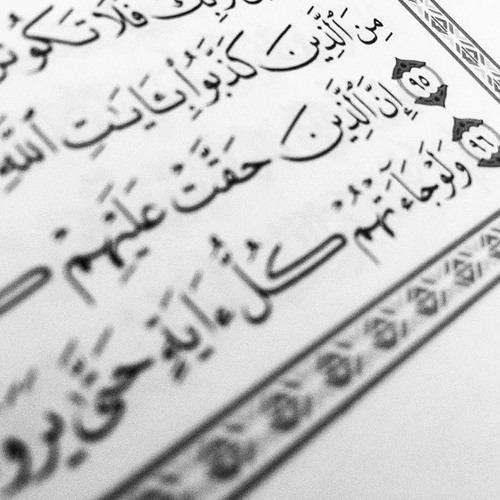 رَّبِّكَ فَلَا
مِنَ ٱلَّذِينَ كَذَّبُوا۟ بِـَٔايَـٰتِ ٱللَّهِ
٩٥ إِنَّ ٱلَّذِينَ حَقَّتْ عَلَيْهِمْ
٩٦ وَلَوْ جَآءَتْهُمْ كُلُّ ءَايَةٍ حَتَّىٰ